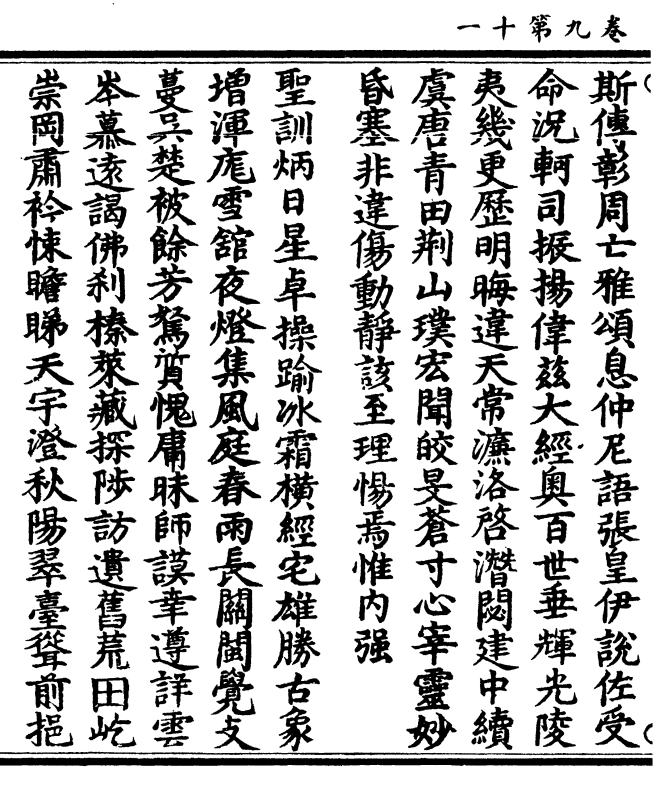 卷九第十一
斯傳彰周亡雅頌息仲尼語張皇伊說佐受
命況軻司振揚偉茲大經奧百世垂輝光陵
夷幾更歷明晦違天常濂洛啓潛閟建中續
虞唐青田荆山璞宏聞皎旻蒼寸心宰靈妙
昏塞非違傷動靜該至理惕焉惟内强
聖訓炳日星卓操踰冰霜橫經宅雄勝古象
增渾厖雪舘夜燈集風庭春雨長關閩覺攴
蔓吳楚被餘芳駑質愧庸昧師謨幸遵詳雲
岑慕遠謁佛刹榛萊藏探陟訪遺舊荒田屹
崇岡肅衿悚瞻睇天宇澄秋陽翠臺聳前挹